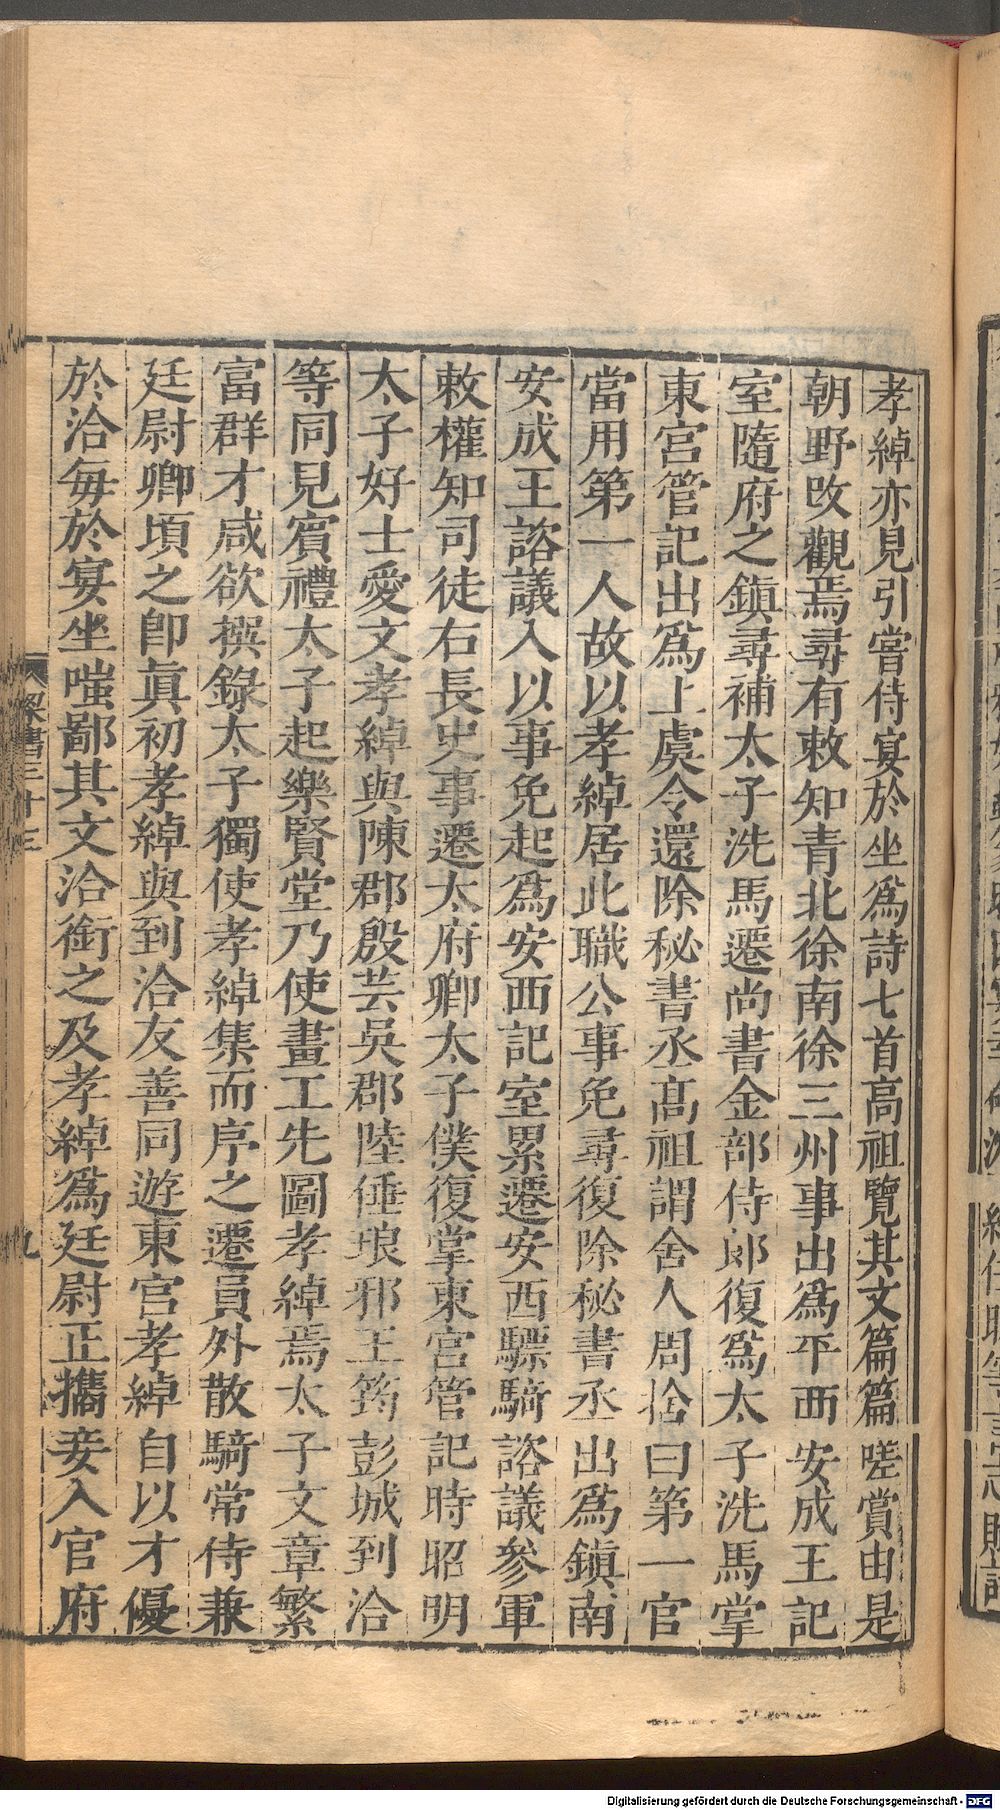 孝綽亦見引嘗侍宴於坐爲詩七首高祖覽其文篇篇嗟賞由是
朝野改觀焉尋有敕知青北徐南徐三州事出爲平西安成王記
室隨府之鎮尋補太子洗馬遷尚書金部侍郎復爲太子洗馬掌
東宮管記出爲上虞令還除秘書丞高祖謂舍人周捨曰第一官
當用第一人故以孝綽居此職公事免尋復除秘書丞出爲鎮南
安成王諮議入以事免起爲安西記室累遷安西驃騎諮議參軍
敕權知司徒右長史事遷太府卿太子僕復掌東宮管記時昭明
太子好士愛文孝綽與陳郡殷芸吳郡陸倕琅邪王筠彭城到洽
等同見賓禮太子起樂賢堂乃使畫工先圖孝綽焉太子文章繁
富群才咸欲撰錄太子獨使孝綽集而序之遷員外散騎常侍兼
廷尉卿頃之卽眞初孝綽與到洽友善同遊東宮孝綽自以才優
於洽每於宴坐嗤鄙其文洽銜之及孝綽爲廷尉正攜妾入官府
梁書三十三
九
Digitalisierung gefördert durch die Deutsche Forschungsgemeinschaft - DFG